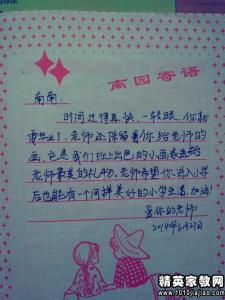 离园寄语
南南：
时间过得真快，一转眼你就
要毕业了，老师还保留着你给老师的
画，它是我们班上出色的小画家送给
老师最美的礼物。老师希望你进入小学
后也能有一个同样美好的小学生活。加油！
爱你的老师
2014年6月27日
精英家教网
www.1010jiajiao.com